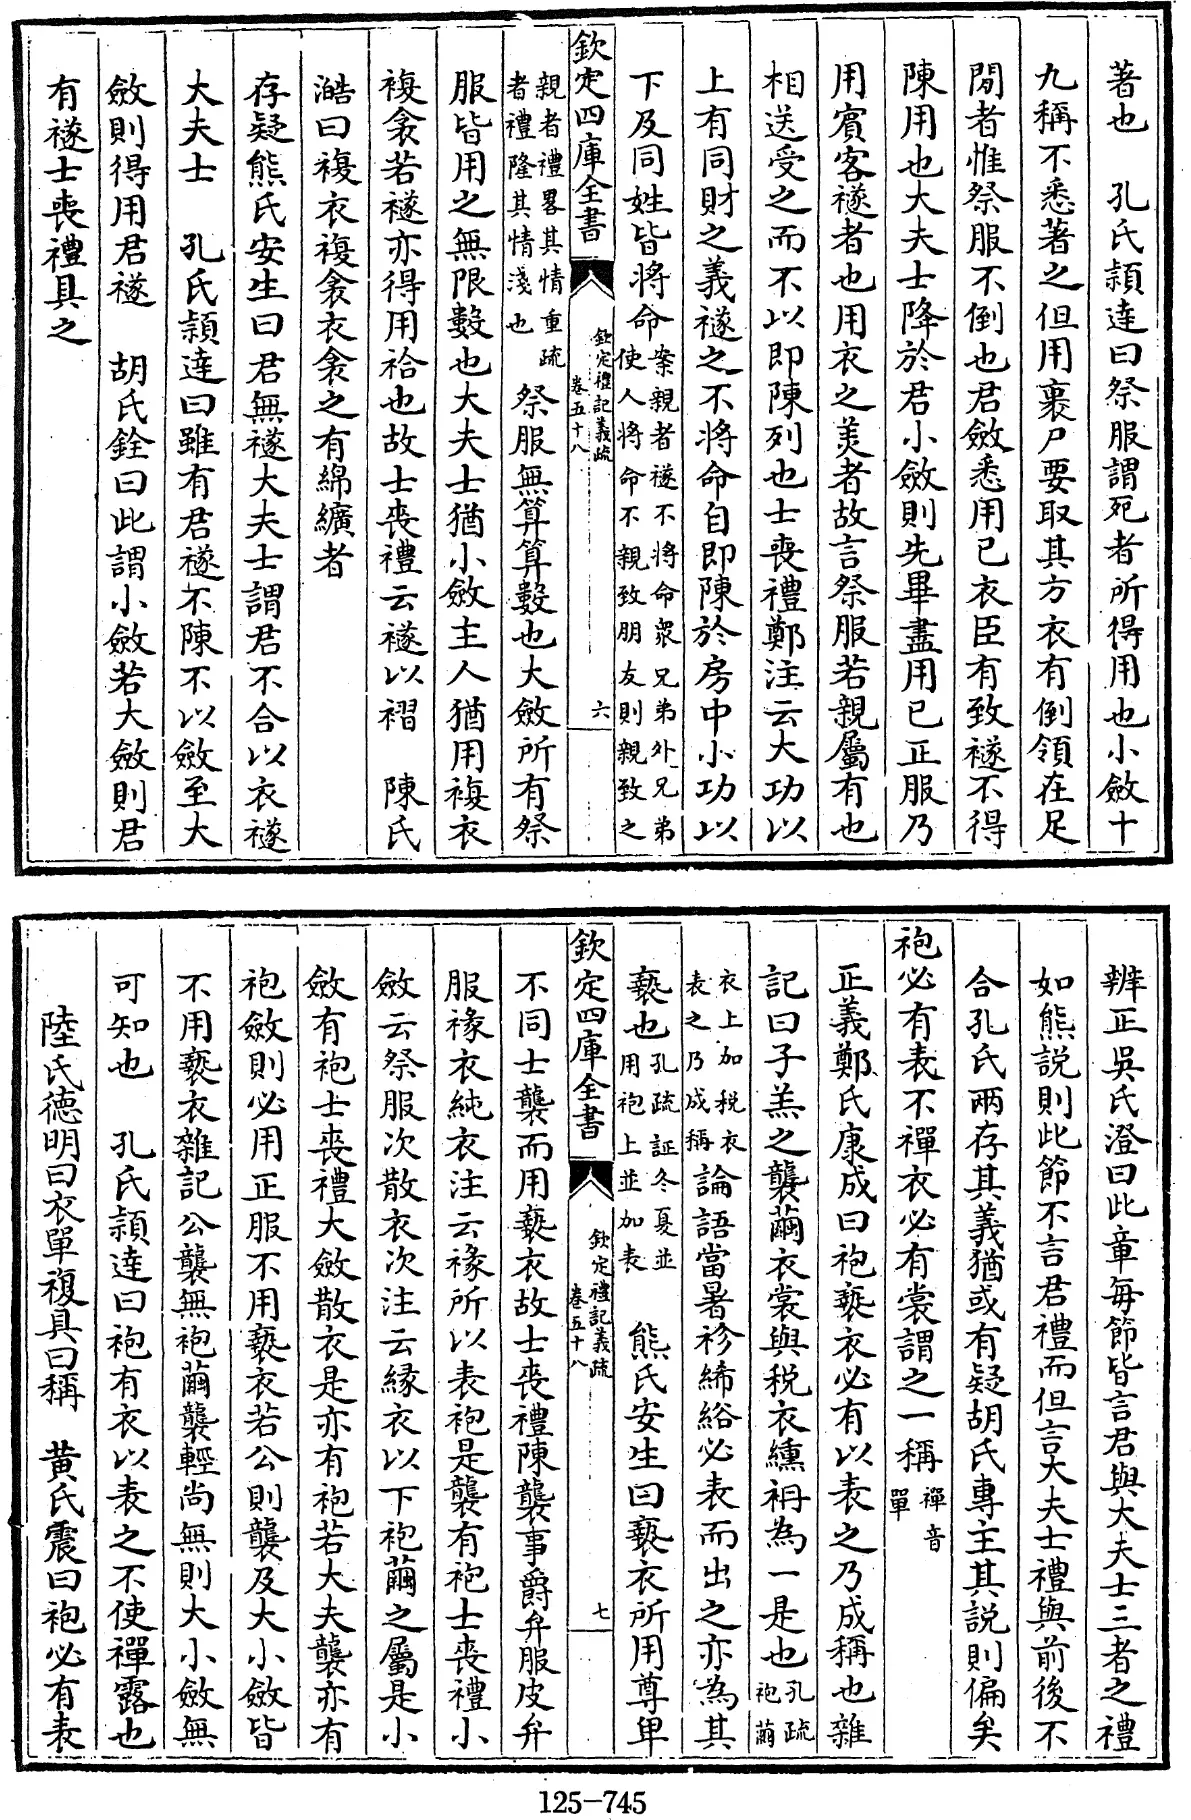 著也　孔氏頴達曰祭服謂死者所得用也小斂十
九稱不悉著之但用裹尸要取其方衣有倒領在足
閒者惟祭服不倒也君斂悉用已衣臣有致襚不得
陳用也大夫士降於君小斂則先畢盡用已正服乃
用賓客襚者也用衣之美者故言祭服若親屬有也
相送受之而不以即陳列也士喪禮鄭注云大功以
上有同財之義襚之不將命自即陳於房中小功以
下及同姓皆將命案親者襚不將命衆兄弟外兄弟使人將命不親致朋友則親致之
欽定四庫全書　欽定禮記義疏卷五十八　六
親者禮畧其情重疏者禮隆其情淺也　祭服無算算數也大斂所有祭
服皆用之無限數也大夫士猶小斂主人猶用複衣
複衾若襚亦得用袷也故士喪禮云襚以褶　陳氏
澔曰複衣複衾衣衾之有綿纊者
存疑熊氏安生曰君無襚大夫士謂君不合以衣襚
大夫士　孔氏頴達曰雖有君襚不陳不以斂至大
斂則得用君襚　胡氏銓曰此謂小斂若大斂則君
有襚士喪禮具之
辨正吳氏澄曰此章每節皆言君與大夫士三者之禮
如熊説則此節不言君禮而但言大夫士禮與前後不
合孔氏兩存其義猶或有疑胡氏專主其説則偏矣
袍必有表不襌衣必有裳謂之一稱襌音單
正義鄭氏康成曰袍褻衣必有以表之乃成稱也雜
記曰子羔之襲繭衣裳與税衣纁袡為一是也孔疏袍繭
衣上加税衣表之乃成稱論語當暑袗絺綌必表而出之亦為其
褻也孔疏証冬夏並用袍上並加表　熊氏安生曰褻衣所用尊卑
欽定四庫全書　欽定禮記義疏卷五十八　七
不同士襲而用褻衣故士喪禮陳襲事爵弁服皮弁
服褖衣純衣注云褖所以表袍是襲有袍士喪禮小
斂云祭服次散衣次注云縁衣以下袍繭之屬是小
斂有袍士喪禮大斂散衣是亦有袍若大夫襲亦有
袍斂則必用正服不用褻衣若公則襲及大小斂皆
不用褻衣雜記公襲無袍繭襲輕尚無則大小斂無
可知也　孔氏頴達曰袍有衣以表之不使襌露也
陸氏德明曰衣單複具曰稱　黄氏震曰袍必有表
125-745